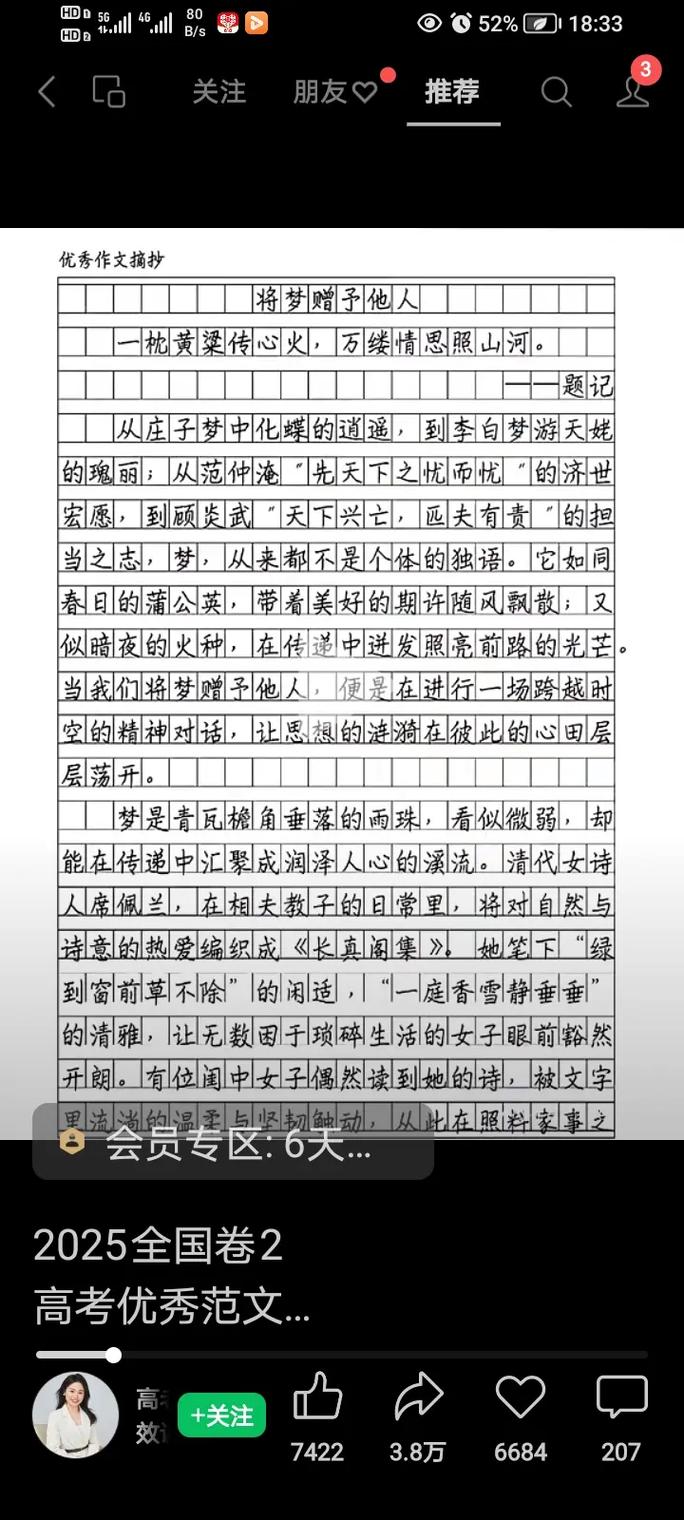 HD 1 5G 4G 80 52% 18:33
HD 2 B/s
关注 朋友 推荐 3
优秀作文摘抄
将梦赠予他人
一枕黄粱传心火，万缕情思照山河。
——题记
从庄子梦中化蝶的逍遥，到李白梦游天姥
的瑰丽；从范仲淹“先天下之忧而忧“的济世
宏愿，到顾炎武“天下兴亡，匹夫有责“的担
当之志，梦，从来都不是个体的独语。它如同
春日的蒲公英，带着美好的期许随风飘散；又
似暗夜的火种，在传递中迸发照亮前路的光芒。
当我们将梦赠予他人，便是在进行一场跨越时
空的精神对话，让思想的涟漪在彼此的心田层
层荡开。
梦是青瓦檐角垂落的雨珠，看似微弱，却
能在传递中汇聚成润泽人心的溪流。清代女诗
人席佩兰，在相夫教子的日常里，将对自然与
诗意的热爱编织成《长真阁集》。她笔下“绿
到窗前草不除”的闲适，“一庭香雪静垂垂”
的清雅，让无数困于琐碎生活的女子眼前豁然
开朗。有位闺中女子偶然读到她的诗，被文字
里流淌的温柔与坚韧触动，从此在照料家事之
会员专区: 6天...
2025全国卷2
高考优秀范文...
高
效
+关注
7422 3.8万 6684 207